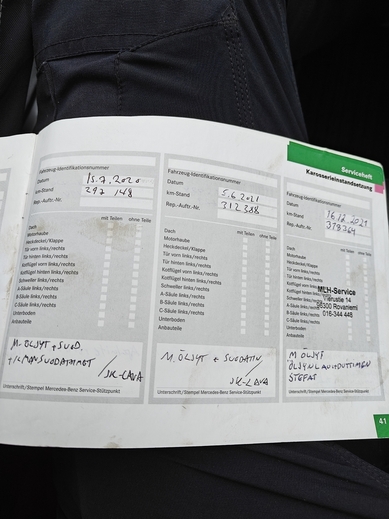 Serviceheft
Karosserieinstandsetzung
Fahrzeug-Identifikationsnummer
Datum 15.7.2020
km-Stand 297 148
Rep.-Auftr.-Nr.
mit Teilen ohne Teile
Dach
Motorhaube
Heckdeckel/Klappe
Tür vorn links/rechts
Tür hinten links/rechts
Kotflügel vorn links/rechts
Kotflügel hinten links/rechts
Schweller links/rechts
A-Säule links/rechts
B-Säule links/rechts
C-Säule links/rechts
Unterboden
Anbauteile
M. ÖLJYT + SUOD,
+ILMANSUODATTIMET
/JK-LAVA
Unterschrift/Stempel Mercedes-Benz Service-Stützpunkt
Fahrzeug-Identifikationsnummer
Datum
km-Stand 5.6.2021
Rep.-Auftr.-Nr. 312 388
mit Teilen ohne Teile
Dach
Motorhaube
Heckdeckel/Klappe
Tür vorn links/rechts
Tür hinten links/rechts
Kotflügel vorn links/rechts
Kotflügel hinten links/rechts
Schweller links/rechts
A-Säule links/rechts
B-Säule links/rechts
C-Säule links/rechts
Unterboden
Anbauteile
M. ÖLJYT + SUODATIN,
/JK-LAVA
Unterschrift/Stempel Mercedes-Benz Service-Stützpunkt
Fahrzeug-Identifikationsnummer
Datum
km-Stand 16.12.2021
Rep.-Auftr.-Nr.
mit Teilen ohne Teile
Dach
Motorhaube
Heckdeckel/Klappe
Tür vorn links/rechts
Tür hinten links/rechts
Kotflügel vorn links/rechts
Kotflügel hinten links/rechts
Schweller links/rechts
A-Säule links/rechts
B-Säule links/rechts
C-Säule links/rechts
Unterboden
Anbauteile
MLH-Service
96300 Rovaniemi
016-344 448
M ÖLJYT
Unterschrift/Stempel Mercedes-Benz Service-Stützpunkt
41